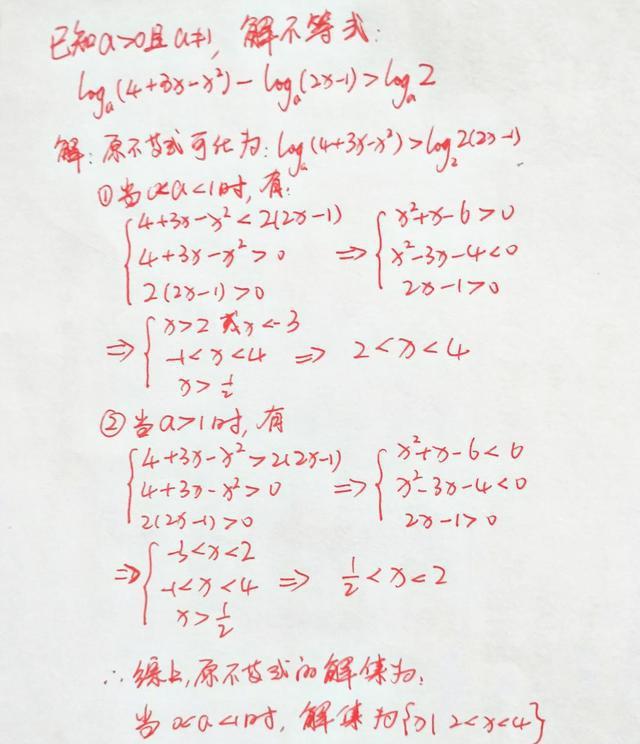 已知a>0且a≠1, 解不等式:
logₐ(4+3x-x²)-logₐ(2x-1)>logₐ2
解: 原不等式可化为: logₐ(4+3x-x²)>log₂2(2x-1)
①当0<a<1时, 有:
{4+3x-x²<2(2x-1) {x²+x-6>0
4+3x-x²>0 ⇒ x²-3x-4<0
2(2x-1)>0 2x-1>0
⇒ {x>2或x<-3
-1<x<4 ⇒ 2<x<4
x>1/2
②当a>1时, 有
{4+3x-x²>2(2x-1) {x²+x-6<0
4+3x-x²>0 ⇒ x²-3x-4<0
2(2x-1)>0 2x-1>0
⇒ {-3<x<2
-1<x<4 ⇒ 1/2<x<2
x>1/2
∴综上, 原不等式的解集为:
当0<a<1时, 解集为{x|2<x<4}